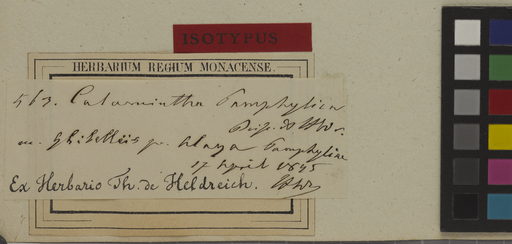 ISOTYPUS
HERBARIUM REGIUM MONACENSE.
563. Calamintha Pamphylica
Boiss. & Hdr.
pr. Alaya Pamphyliae
17 April 1845
Ex Herbario Th. de Heldreich.